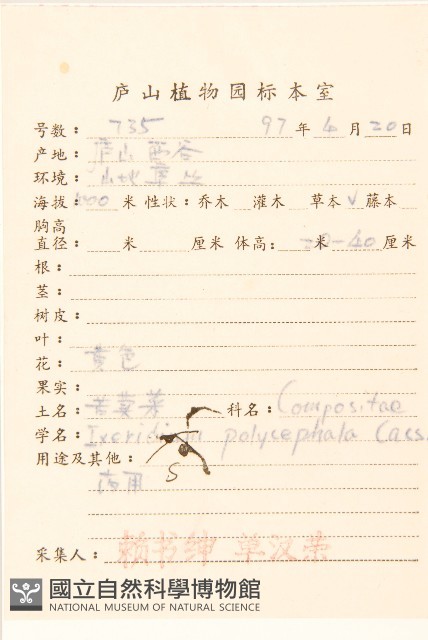 庐山植物园标本室
号数: 735 97年 4月 20日
产地: 庐山
环境: 山地草丛
海拔: 米 性状: 乔木 灌木 草本 √ 藤本
胸高
直径: 米 厘米 体高: 米 -40 厘米
根:
茎:
树皮:
叶:
花: 黄色
果实:
土名: 苦荬菜 科名: Compositae
学名: Ixeridium polycephala Cass.
用途及其他:
药用
采集人: 赖书绅 单汉荣
國立自然科學博物館
NATIONAL MUSEUM OF NATURAL SCIENCE